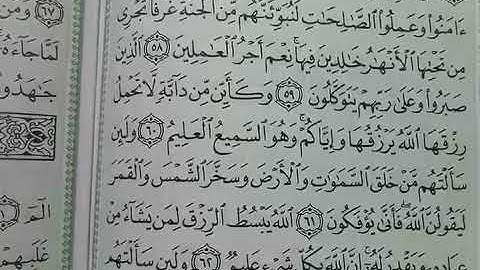 ءَامَنُوا۟ وَعَمِلُوا۟ ٱلصَّـٰلِحَـٰتِ لَنُبَوِّئَنَّهُم مِّنَ ٱلْجَنَّةِ غُرَفًا تَجْرِى
مِن تَحْتِهَا ٱلْأَنْهَـٰرُ خَـٰلِدِينَ فِيهَا ۚ نِعْمَ أَجْرُ ٱلْعَـٰمِلِينَ ٥٨ ٱلَّذِينَ
صَبَرُوا۟ وَعَلَىٰ رَبِّهِمْ يَتَوَكَّلُونَ ٥٩ وَكَأَيِّن مِّن دَآبَّةٍ لَّا تَحْمِلُ
رِزْقَهَا ٱللَّهُ يَرْزُقُهَا وَإِيَّاكُمْ ۚ وَهُوَ ٱلسَّمِيعُ ٱلْعَلِيمُ ٦٠ وَلَئِن
سَأَلْتَهُم مَّنْ خَلَقَ ٱلسَّمَـٰوَٰتِ وَٱلْأَرْضَ وَسَخَّرَ ٱلشَّمْسَ وَٱلْقَمَرَ
لَيَقُولُنَّ ٱللَّهُ ۖ فَأَنَّىٰ يُؤْفَكُونَ ٦١ ٱللَّهُ يَبْسُطُ ٱلرِّزْقَ لِمَن يَشَآءُ مِنْ
عِبَادِهِۦ وَيَقْدِرُ لَهُۥٓ ۚ إِنَّ ٱللَّهَ بِكُلِّ شَىْءٍ عَلِيمٌ ٦٢ وَلَئِن سَأَلْتَهُم
٦٧ وَمَنْ
لَمَّا جَآءَهُۥٓ
جَـٰهَدُوا۟
الٓمٓ ١
غَلَبِهِمْ